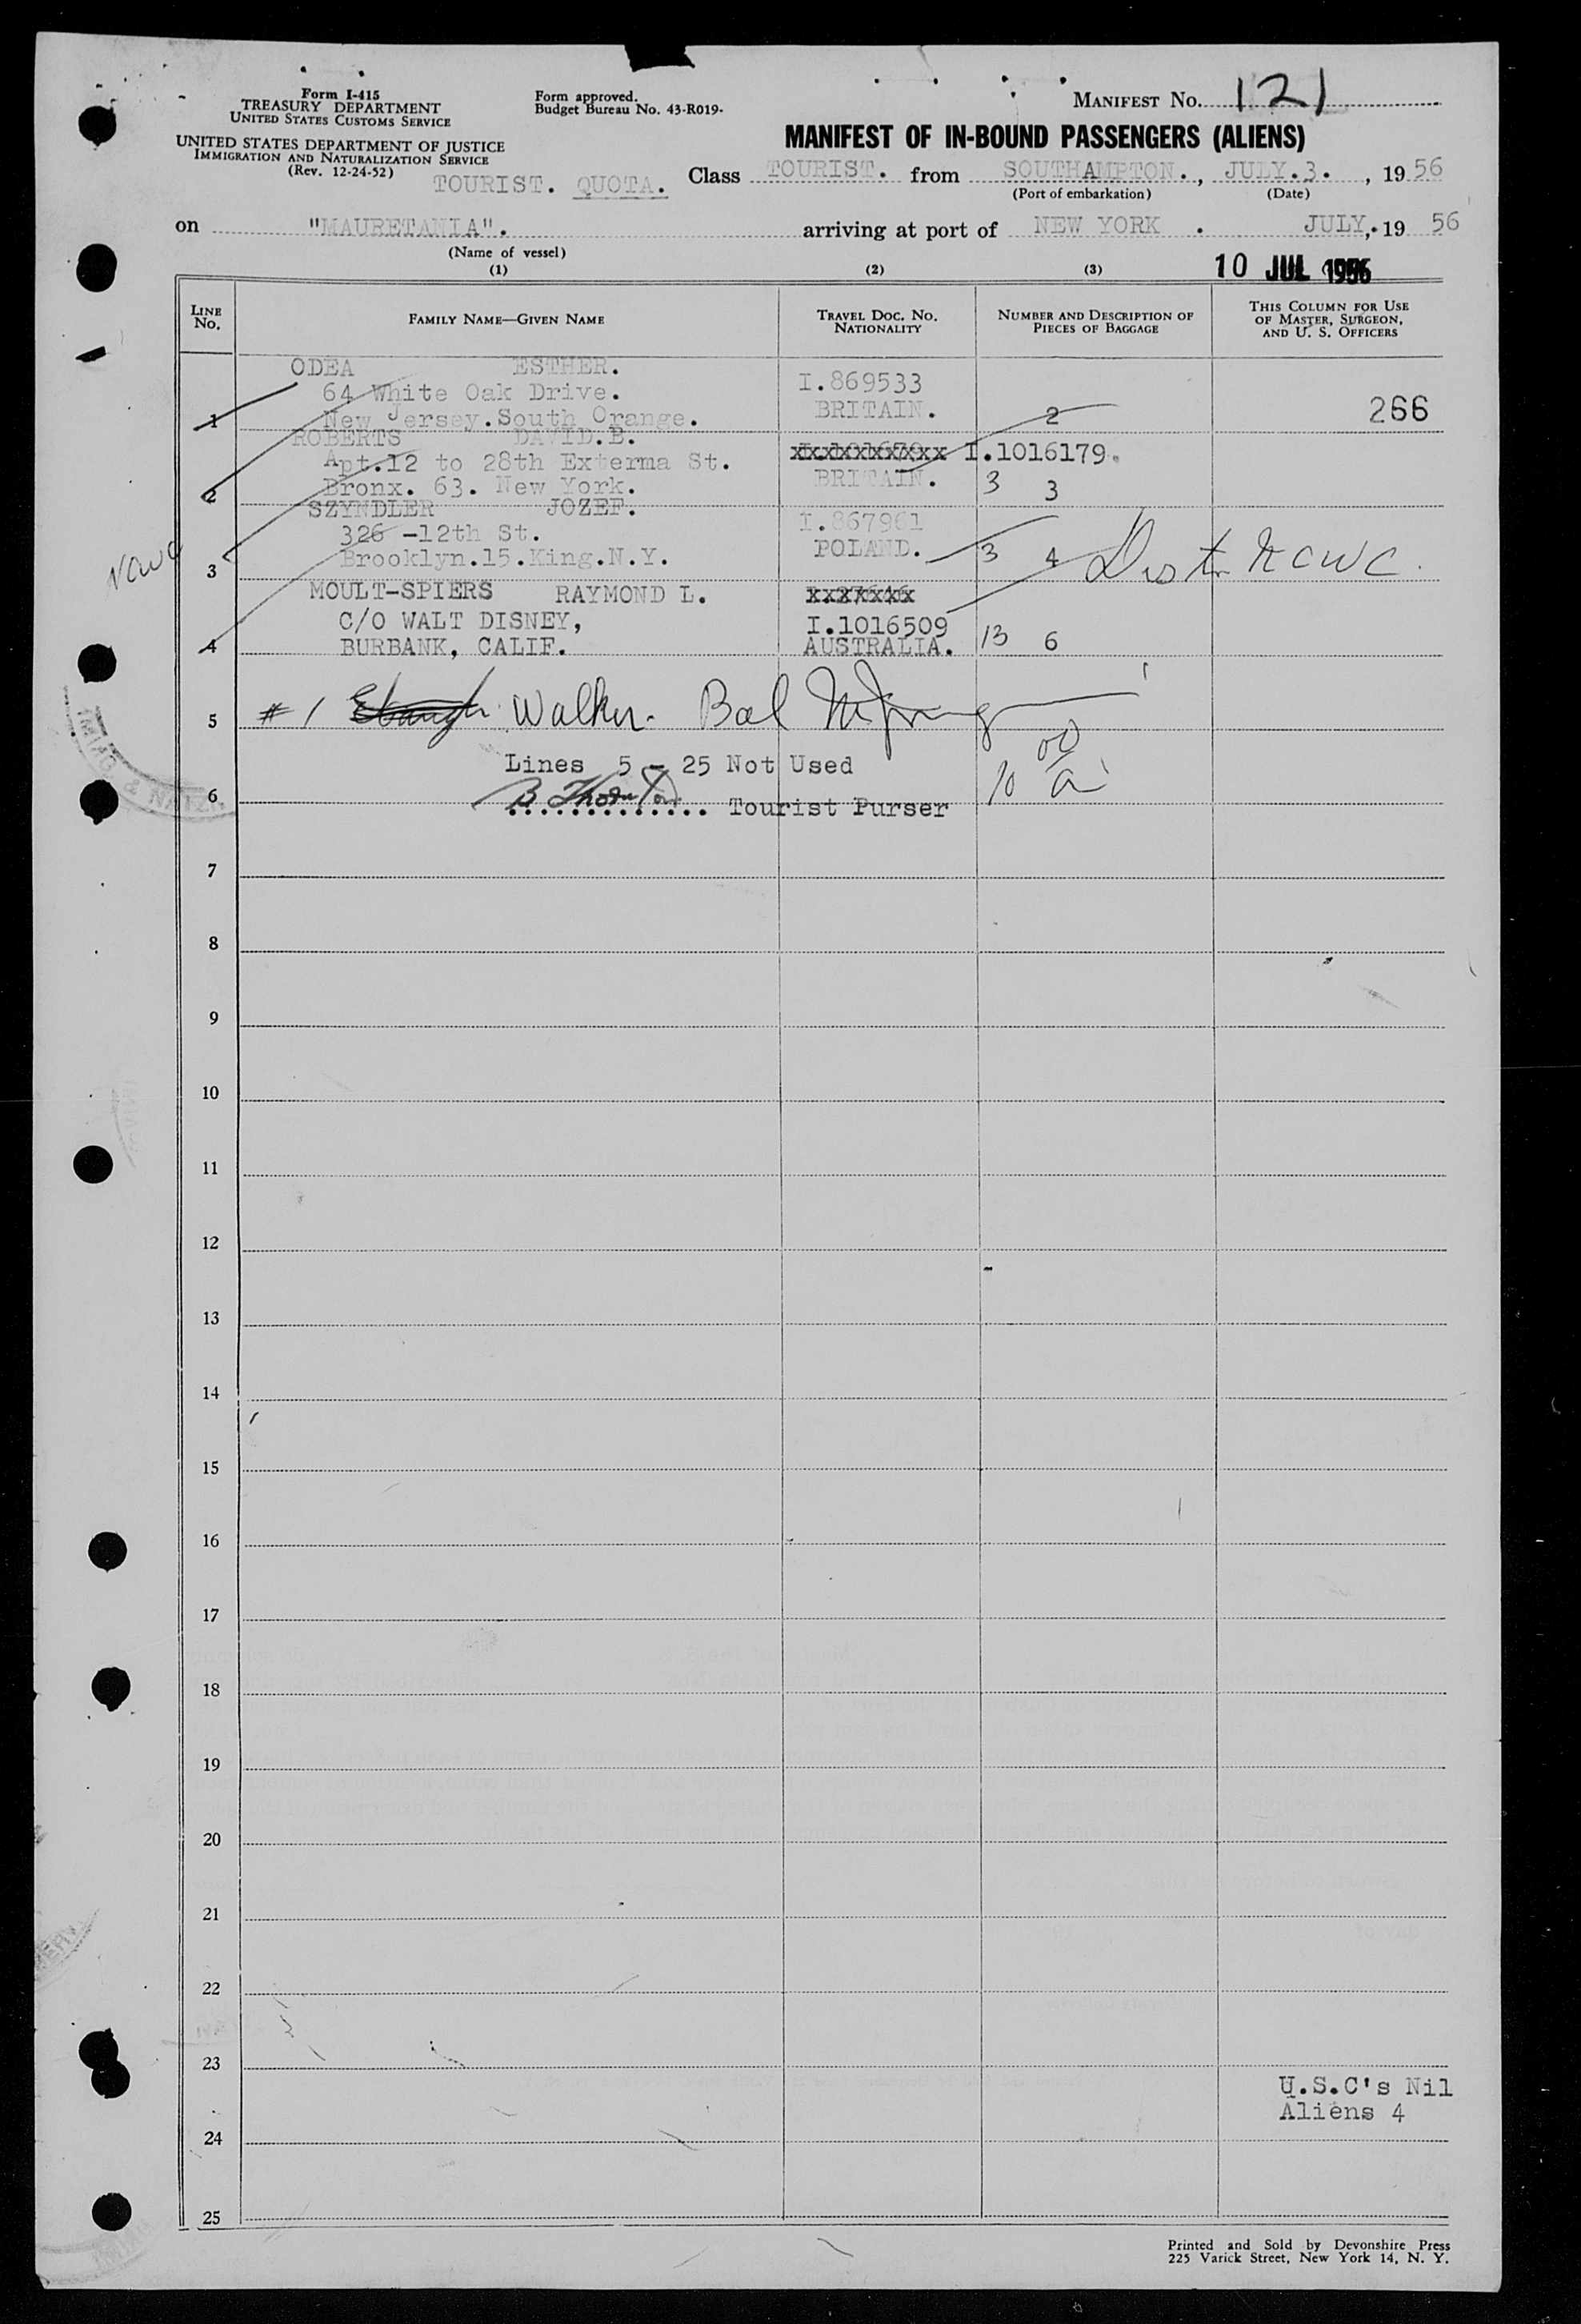 Form I-415
TREASURY DEPARTMENT
UNITED STATES CUSTOMS SERVICE
Form approved.
Budget Bureau No. 43-R019.
MANIFEST NO. 121
UNITED STATES DEPARTMENT OF JUSTICE
IMMIGRATION AND NATURALIZATION SERVICE
(Rev. 12-24-52)
MANIFEST OF IN-BOUND PASSENGERS (ALIENS)
TOURIST. QUOTA. Class TOURIST. from SOUTHAMPTON., JULY.3. , 19 56
(Port of embarkation) (Date)
on "MAURETANIA". arriving at port of NEW YORK . JULY, 19 56
(Name of vessel)
(1) (2) (3) 10 JUL 1956
LINE No. FAMILY NAME—GIVEN NAME TRAVEL DOC. NO. NATIONALITY NUMBER AND DESCRIPTION OF PIECES OF BAGGAGE THIS COLUMN FOR USE OF MASTER, SURGEON, AND U. S. OFFICERS
ODEA ESTHER.
64 White Oak Drive. I.869533
1 New Jersey.South Orange. BRITAIN. 2 266
ROBERTS DAVID.B.
Apt.12 to 28th Exterma St. xxxxxxxxxx I.1016179.
2 Bronx. 63. New York. BRITAIN. 3 3
SZYNDLER JOZEF. I.867961
326 -12th St.
3 Brooklyn.15.King.N.Y. POLAND. 3 4 NCWC.
MOULT-SPIERS RAYMOND L. xxxxxxx
C/O WALT DISNEY, I.1016509
4 BURBANK, CALIF. AUSTRALIA. 13 6
5 # 1 Walker. Bal
Lines 5 - 25 Not Used
6 B Thornton Tourist Purser 10
7
8
9
10
11
12
13
14
15
16
17
18
19
20
21
22
23
U.S.C's Nil
Aliens 4
24
25
Printed and Sold by Devonshire Press
225 Varick Street, New York 14, N. Y.